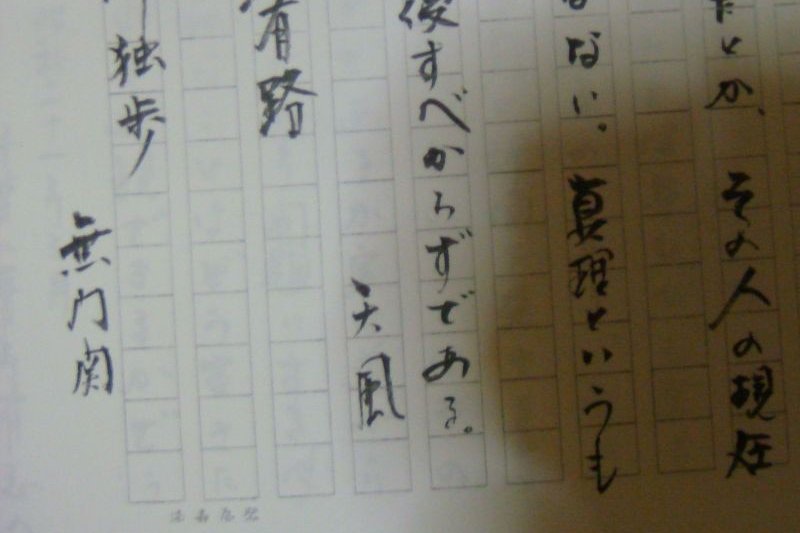 たとか、その人の現在
ない。真理というも
すべからずである。
天風
有路
独歩
無門関